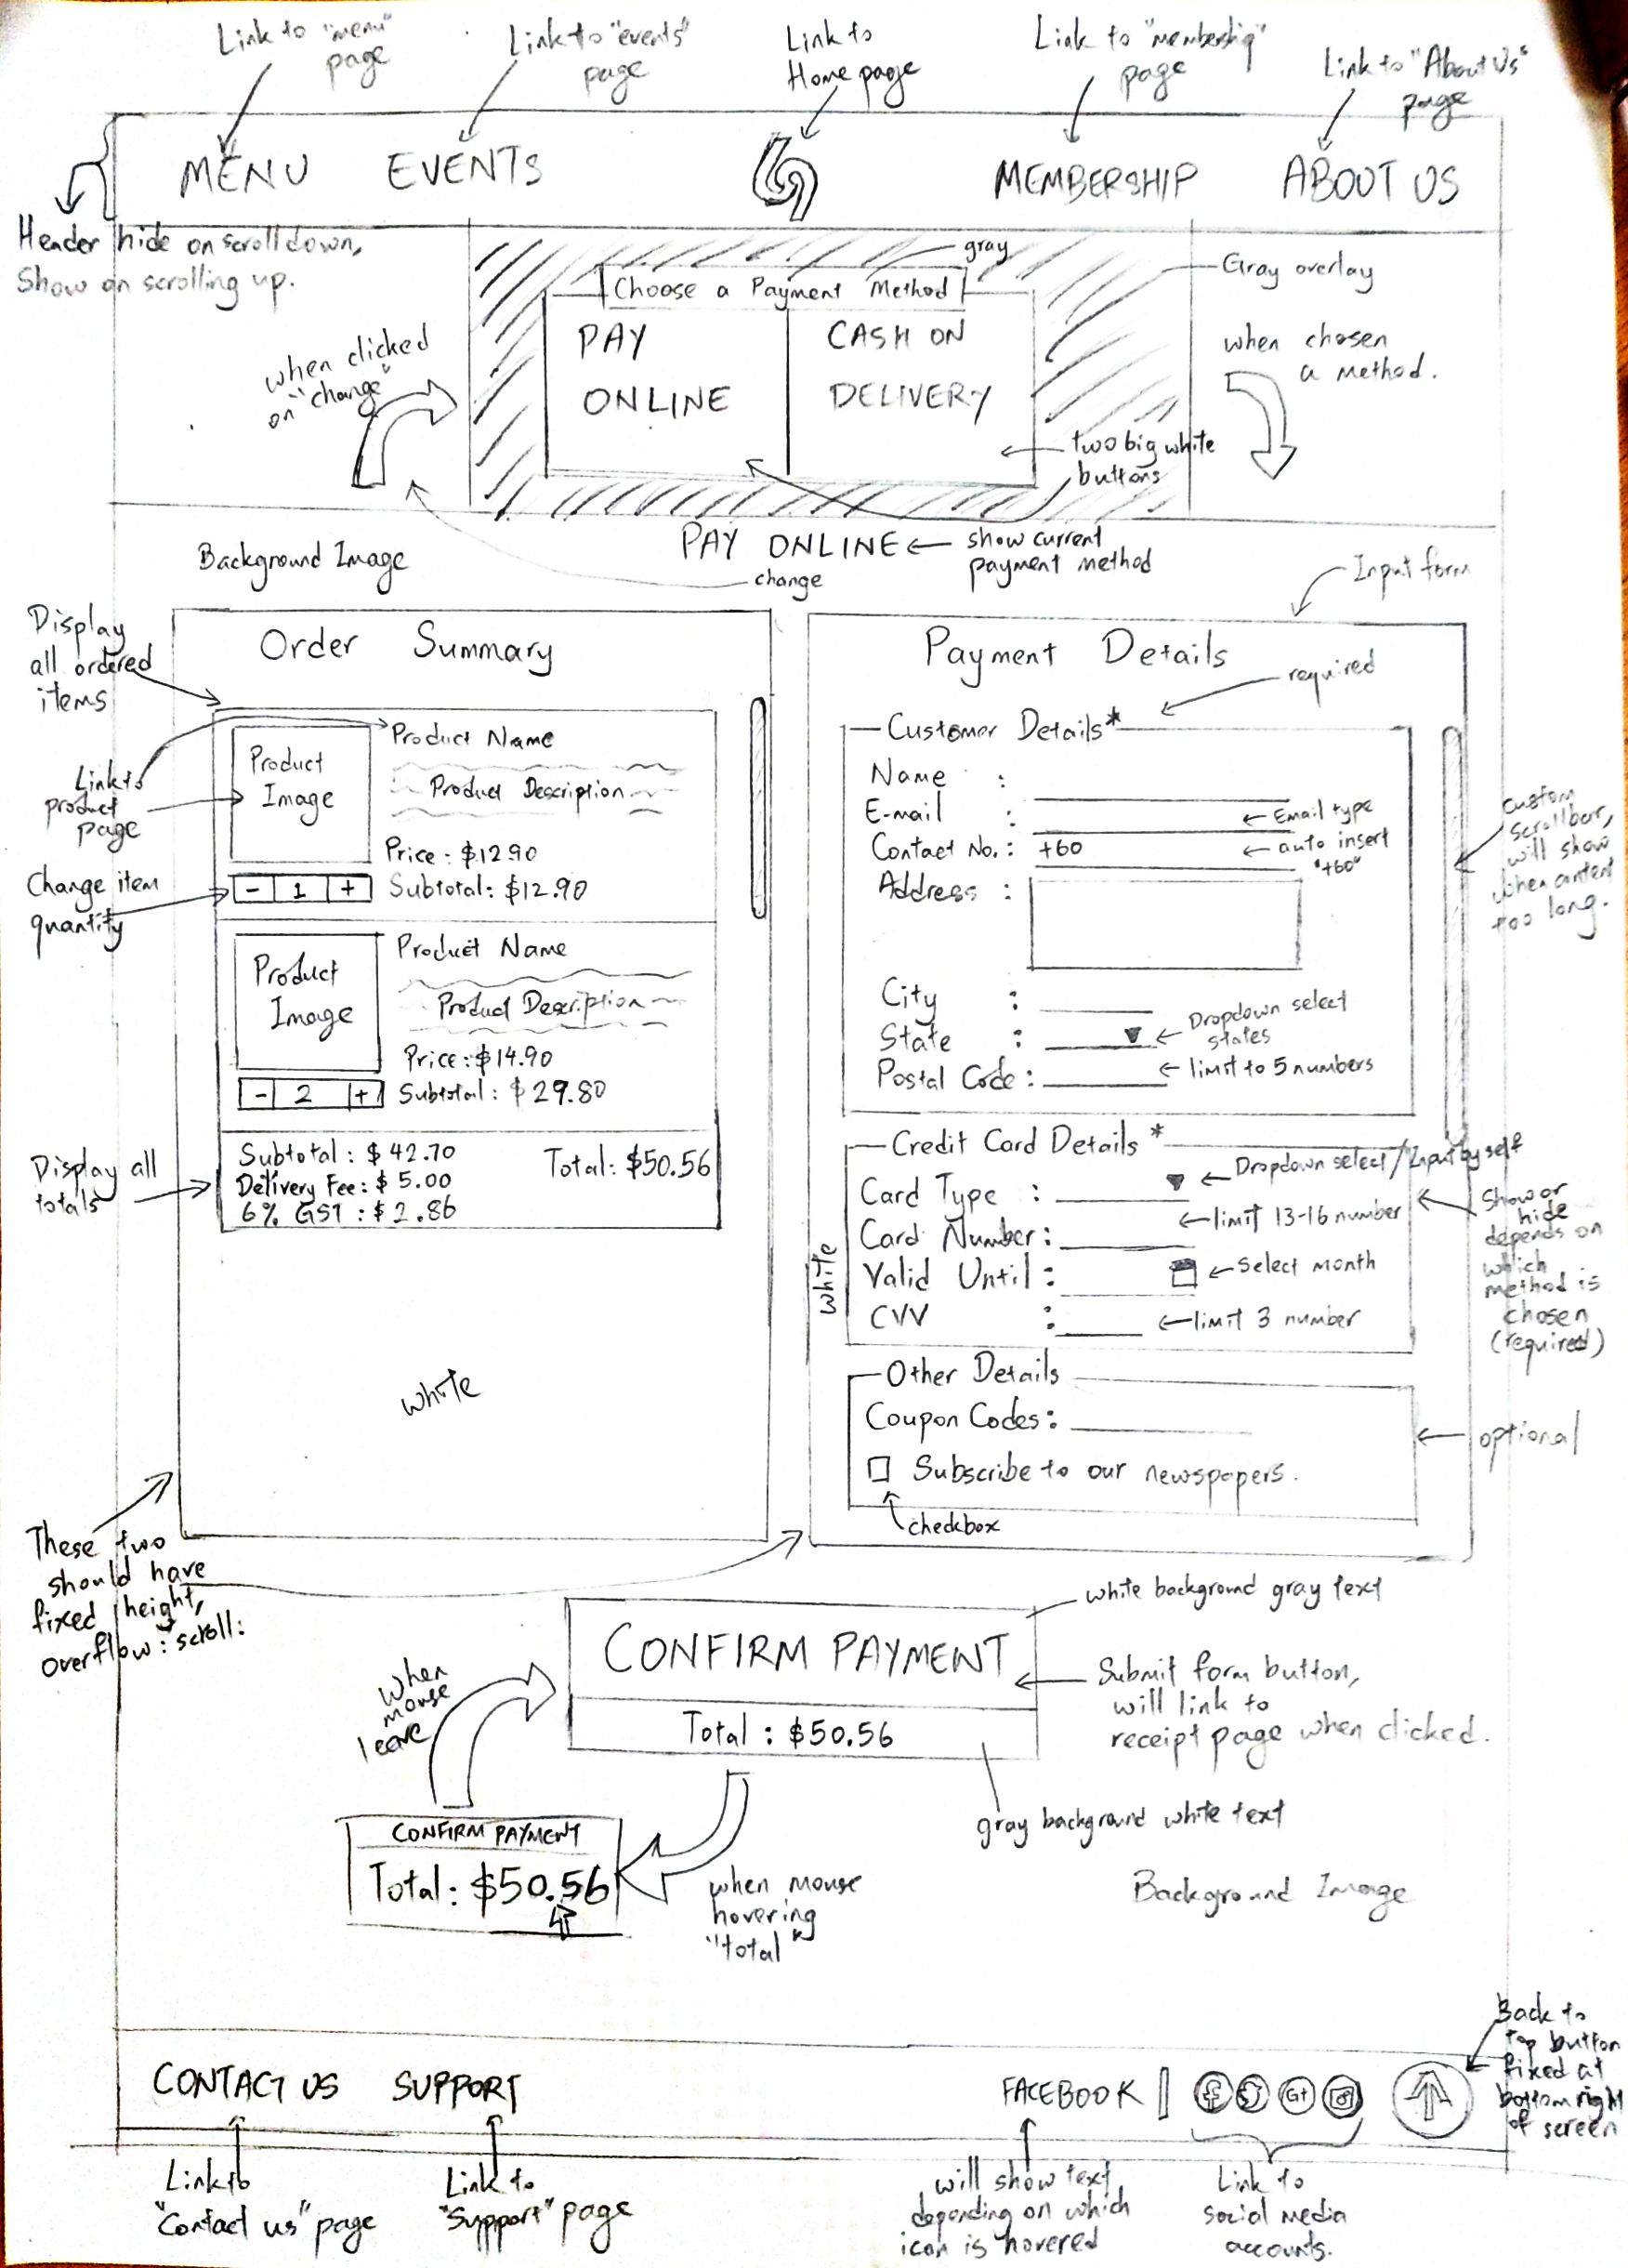 Link to "menu"
page
Link to "events"
page
Link to
Home page
Link to "membership"
page
Link to "About Us"
page
MENU EVENTS MEMBERSHIP ABOUT US
Header hide on scroll down,
Show on scrolling up.
gray
Gray overlay
Choose a Payment Method
PAY
ONLINE
CASH ON
DELIVERY
when clicked
on "change"
when chosen
a method.
two big white
buttons
Background Image
PAY ONLINE
change
show current
payment method
Input form
Display
all ordered
items
Order Summary
Product
Image
Product Name
Product Description
Price : $12.90
- 1 + Subtotal : $12.90
Link to
product
page
Change item
quantity
Product
Image
Product Name
Product Description
Price : $14.90
- 2 + Subtotal : $29.80
Display all
totals
Subtotal : $42.70 Total : $50.56
Delivery Fee : $5.00
6% GST : $2.86
white
These two
should have
fixed height,
overflow : scroll;
Payment Details
required
Customer Details*
Name :
E-mail : Email type
Contact No. : +60 auto insert
"+60"
Address :
City :
State : Dropdown select
states
Postal Code : limit to 5 numbers
custom
scrollbar,
will show
when content
too long.
Credit Card Details *
Card Type : Dropdown select / Input by self
Card Number : limit 13-16 number
Valid Until : Select month
CVV : limit 3 number
white
Show or
hide
depends on
which
method is
chosen
(required)
Other Details
Coupon Codes :
Subscribe to our newspapers.
checkbox
optional
CONFIRM PAYMENT
Total : $50.56
white background gray text
Submit form button,
will link to
receipt page when clicked.
gray background white text
when
mouse
leave
CONFIRM PAYMENT
Total : $50.56
when mouse
hovering
"total"
Background Image
CONTACT US SUPPORT FACEBOOK G+
Back to
top button
fixed at
bottom right
of screen
Link to
"Contact us" page
Link to
"Suppport" page
will show text
depending on which
icon is hovered
Link to
social media
accounts.